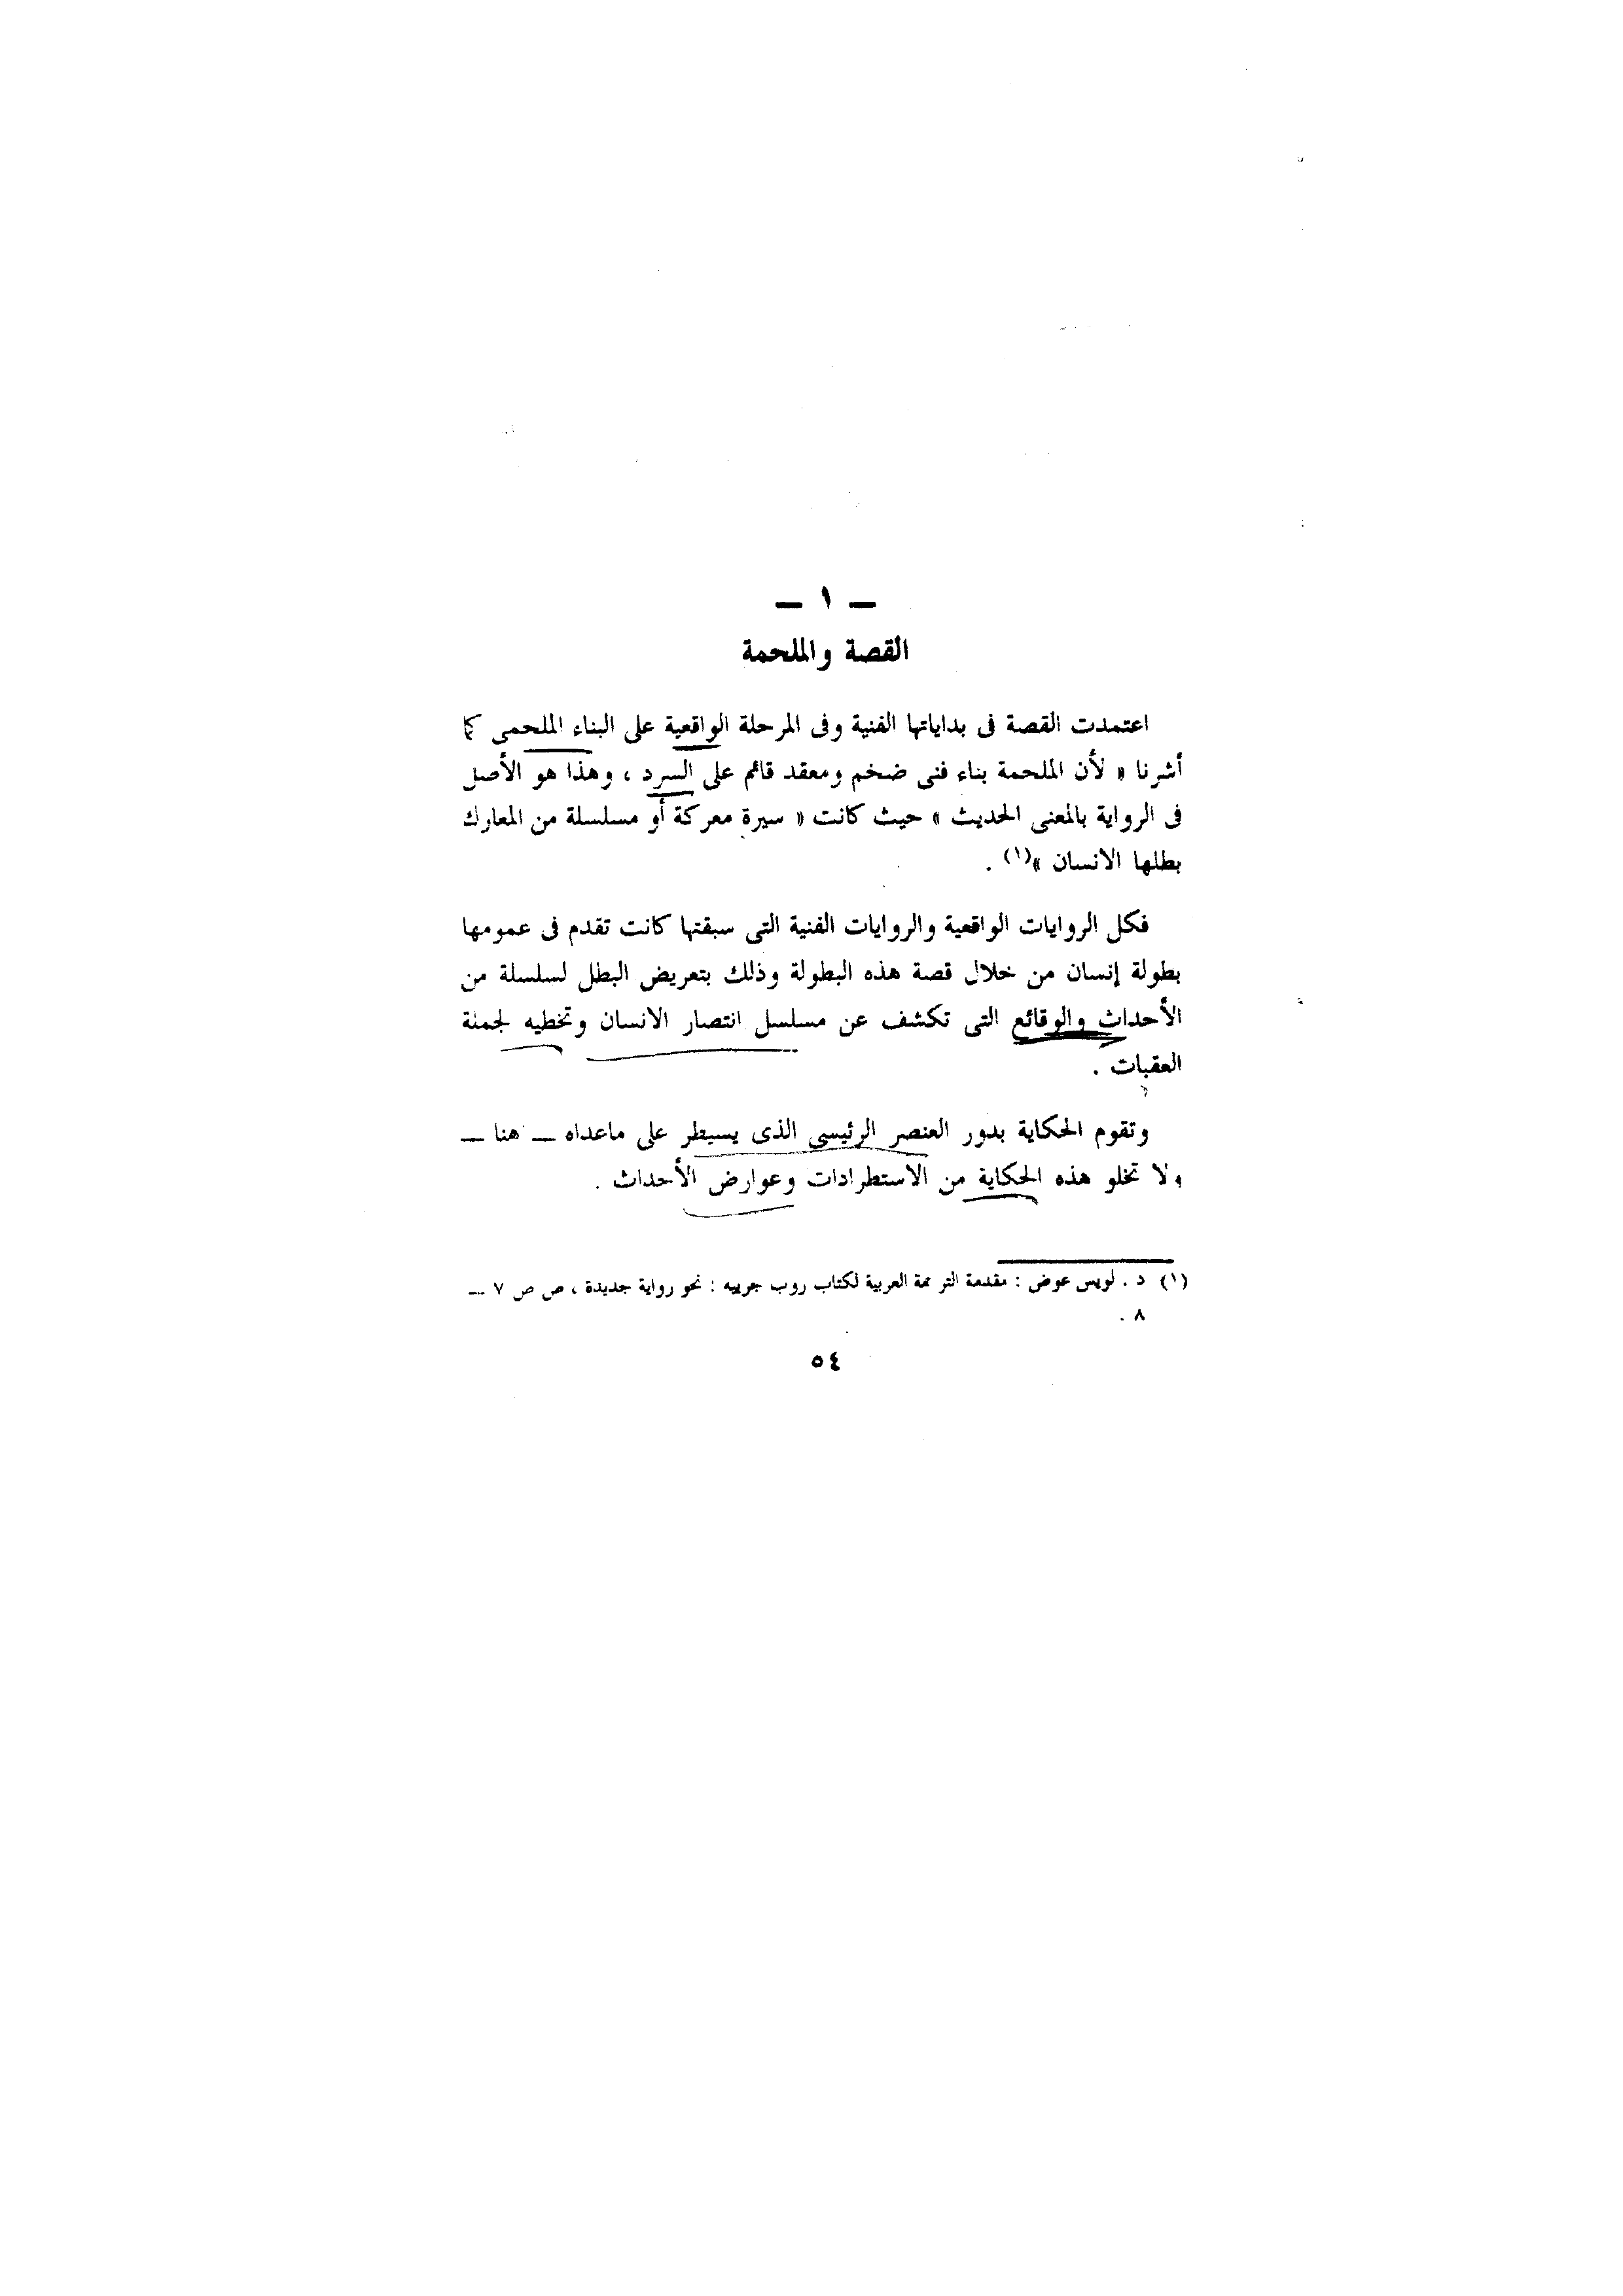 — ١ —
القصة والملحمة
اعتمدت القصة فى بداياتها الفنية وفى المرحلة الواقعية على البناء الملحمى كما
أشرنا « لأن الملحمة بناء فنى ضخم ومعقد قائم على السرد ، وهذا هو الأصل
فى الرواية بالمعنى الحديث » حيث كانت « سيرة معركة أو مسلسلة من المعارك
بطلها الانسان »(١) .
فكل الروايات الواقعية والروايات الفنية التى سبقتها كانت تقدم فى عمومها
بطولة إنسان من خلال قصة هذه البطولة وذلك بتعريض البطل لسلسلة من
الأحداث والوقائع التى تكشف عن مسلسل انتصار الانسان وتخطيه لجملة
العقبات .
وتقوم الحكاية بدور العنصر الرئيسى الذى يسيطر على ماعداه — هنا —
ولا تخلو هذه الحكاية من الاستطرادات وعوارض الأحداث .
(١) د . لويس عوض : مقدمة الترجمة العربية لكتاب روب جرييه : نحو رواية جديدة ، ص ص ٧ —
٨ .
٥٤